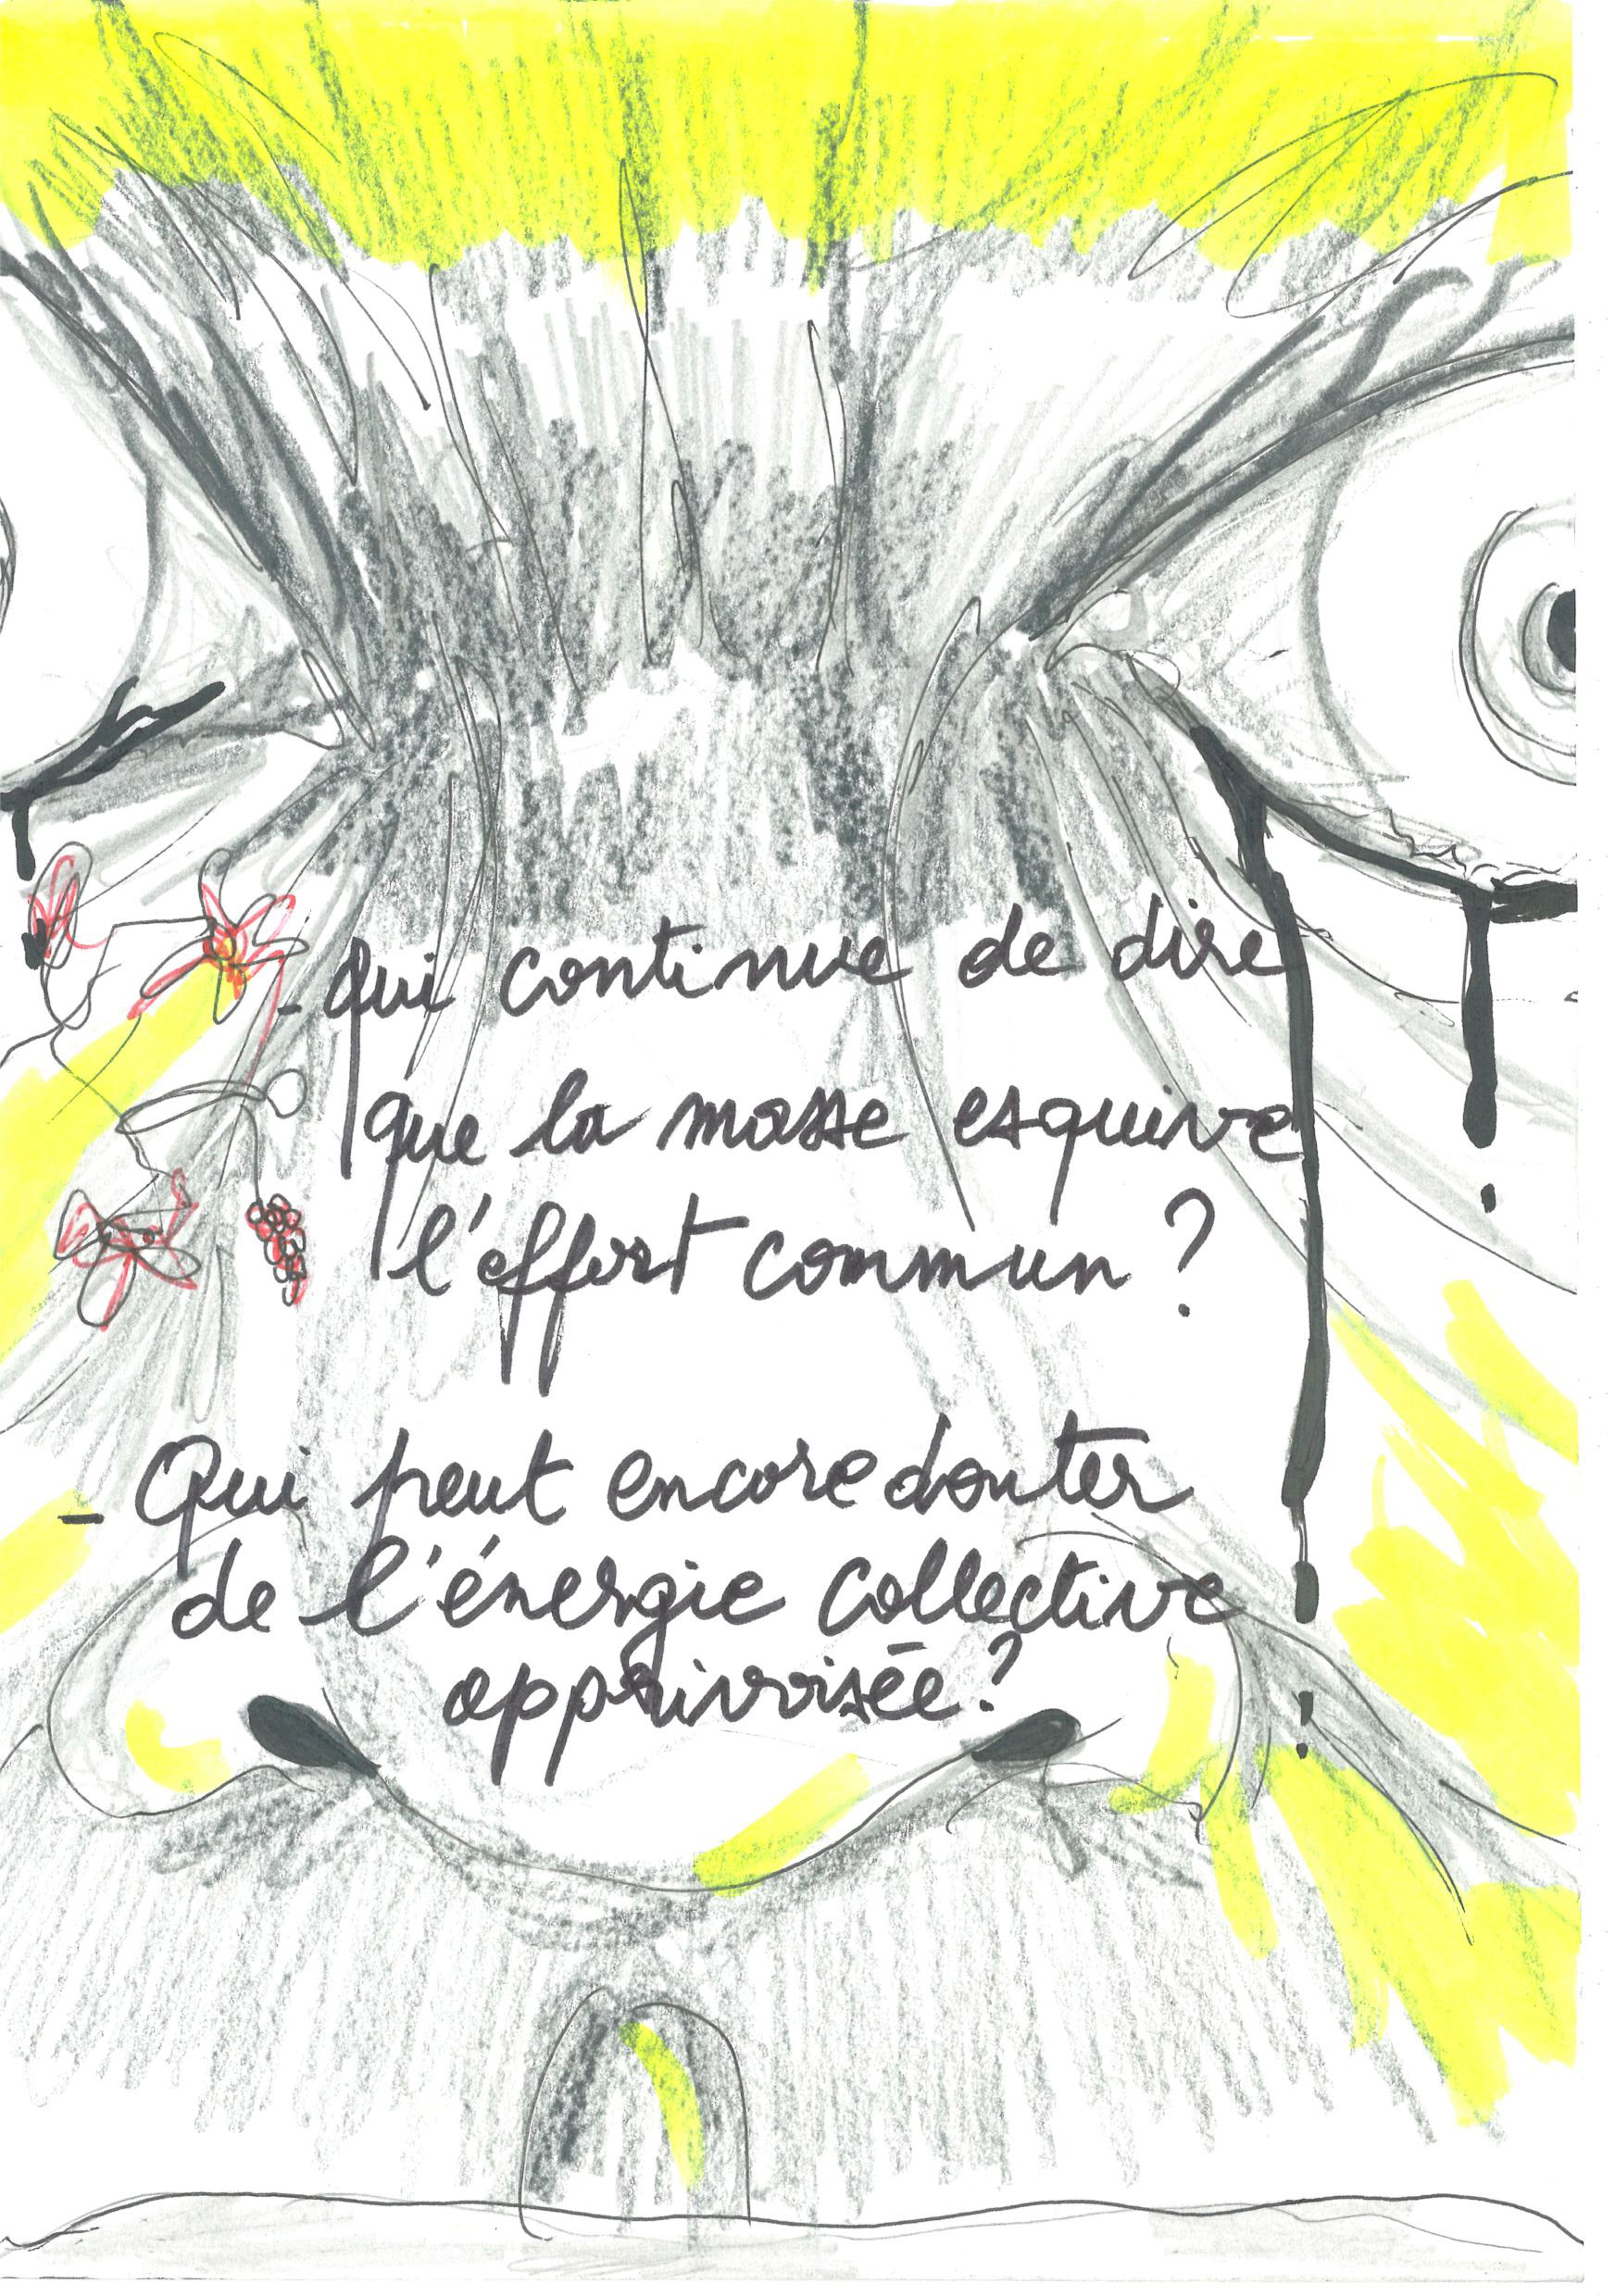 - Qui continue de dire
que la masse esquive
l'effort commun ?
- Qui peut encore douter
de l'énergie collective
apprivoisée ?